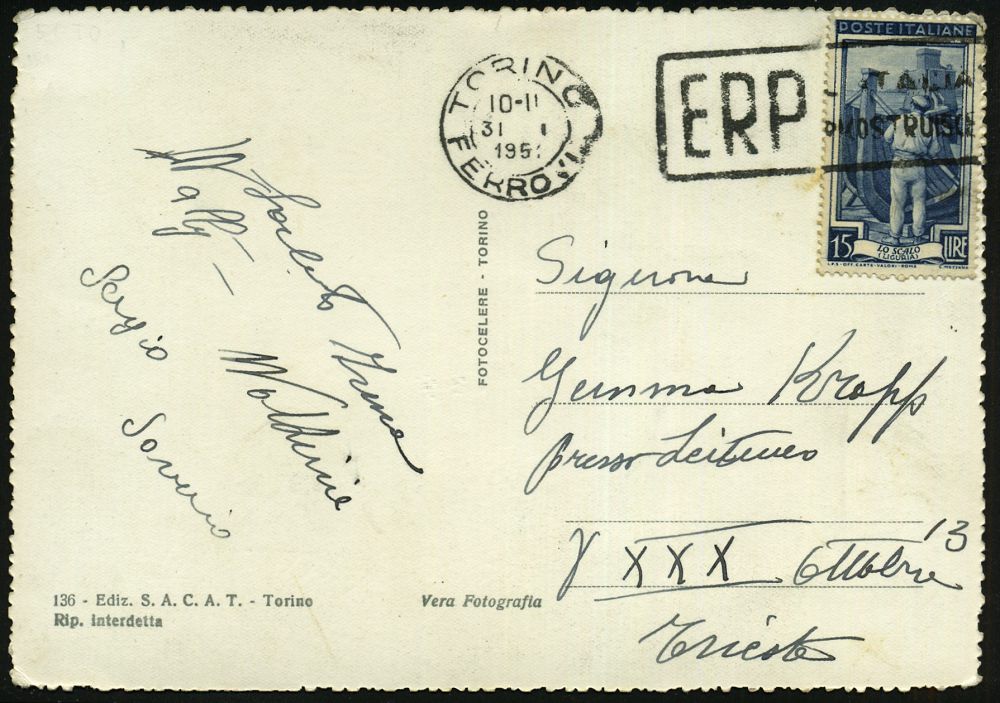 TORINO
10-11
31 1
195
FERROVIA
ERP
L'ITALIA
RICOSTRUISCE
POSTE ITALIANE
15 LIRE
LO SCALO
(LIGURIA)
I.P.S.-OFF. CARTE-VALORI-ROMA C. MEZZANA
Wally -
Sergio
Saverio
FOTOCELERE - TORINO
Signora
Gemma Kropf
presso
V XXX Ottobre 13
Trieste
136 - Ediz. S. A. C. A. T. - Torino
Rip. interdetta
Vera Fotografia